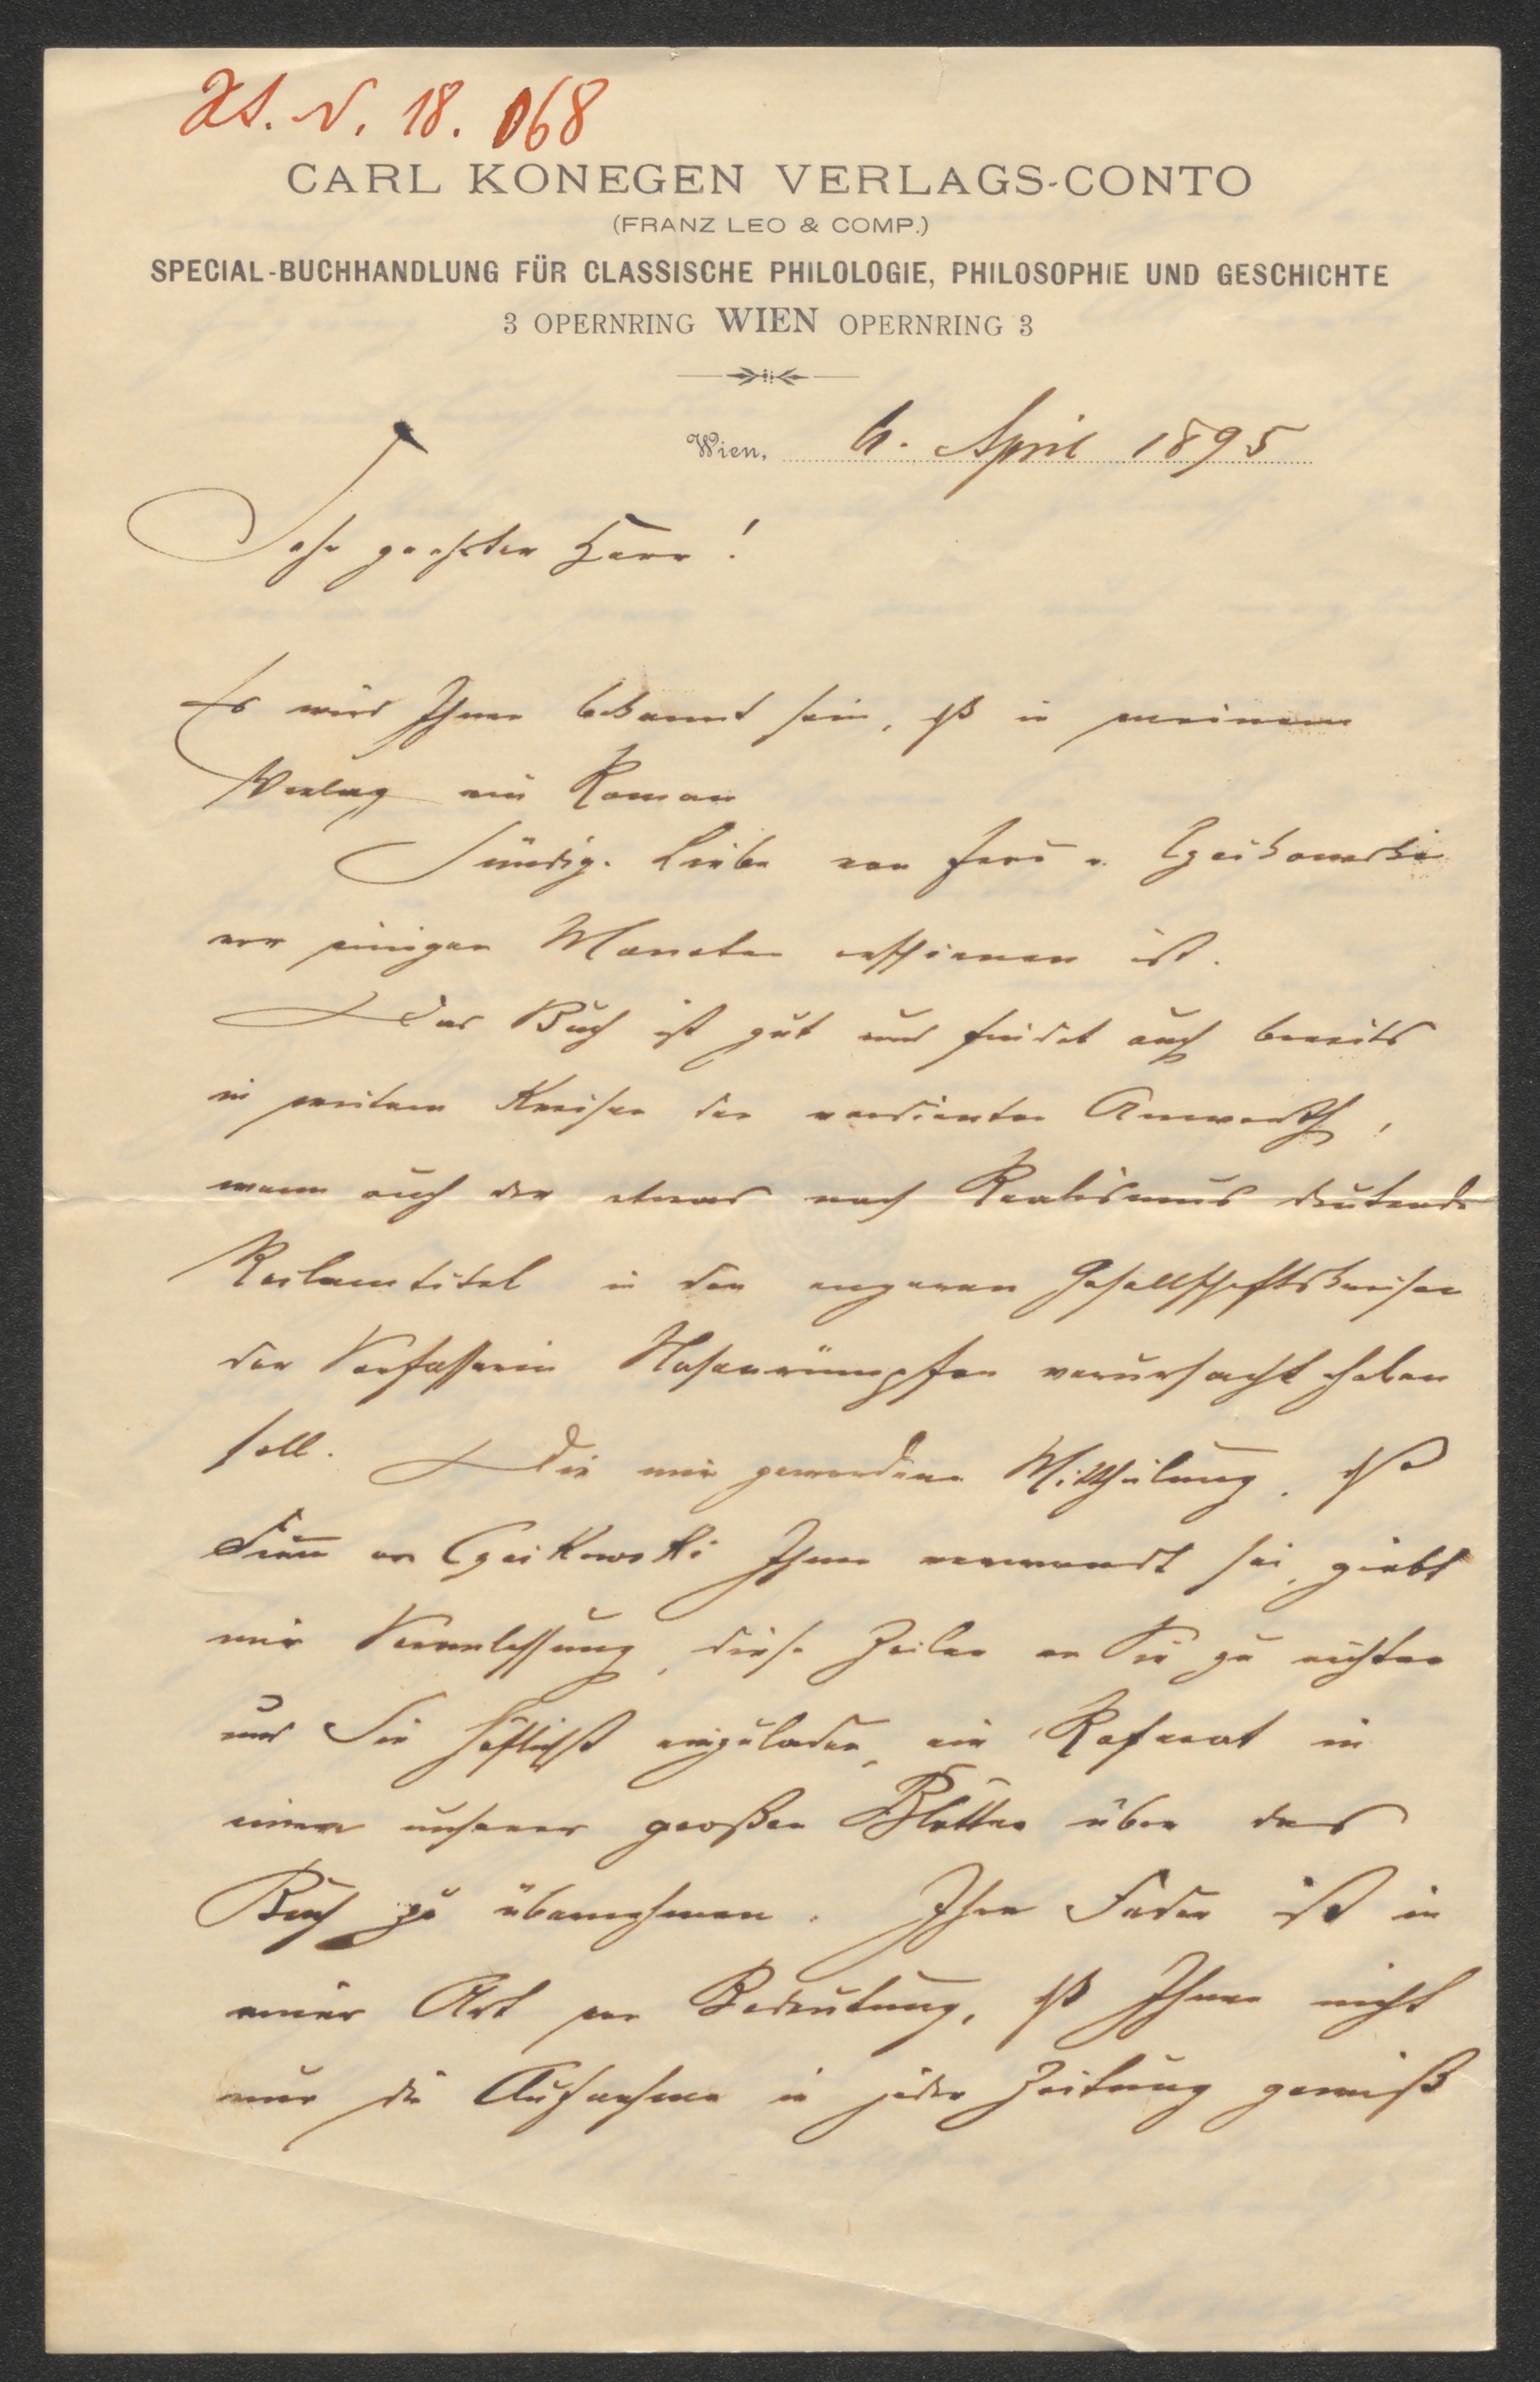 I. N. 18. 068
CARL KONEGEN VERLAGS-CONTO
(FRANZ LEO & COMP.)
SPECIAL-BUCHHANDLUNG FÜR CLASSISCHE PHILOLOGIE, PHILOSOPHIE UND GESCHICHTE
3 OPERNRING WIEN OPERNRING 3
Wien, 6. April 1895
Sehr geehrter Herr!
Es wird Ihnen bekannt sein, dß in meinem
Verlag ein Roman
Sündige Liebe von v. Czaikowska
vor einigen Monaten erschienen ist.
Das Buch ist gut und findet auch bereits
in weiteren Kreisen den verdienten Anwerth,
wenn auch der etwas nach Realismus deutende
Reclametitel in den engeren Gesellschaftskreisen
der Verfasserin Nasenrümpfen verursacht haben
soll. Die mir gewordene Mittheilung, dß
Frau v. Czaikowski Ihnen verwandt sei, giebt
mir Veranlassung, diese Zeilen an Sie zu richten
und Sie höflichst einzuladen, ein Referat in
einem unserer großen Blätter über das
Buch zu übernehmen. Ihre Feder ist in
einer Art von Bedeutung, dß Ihnen nicht
nur die Aufnahme in jeder Zeitung gewiß